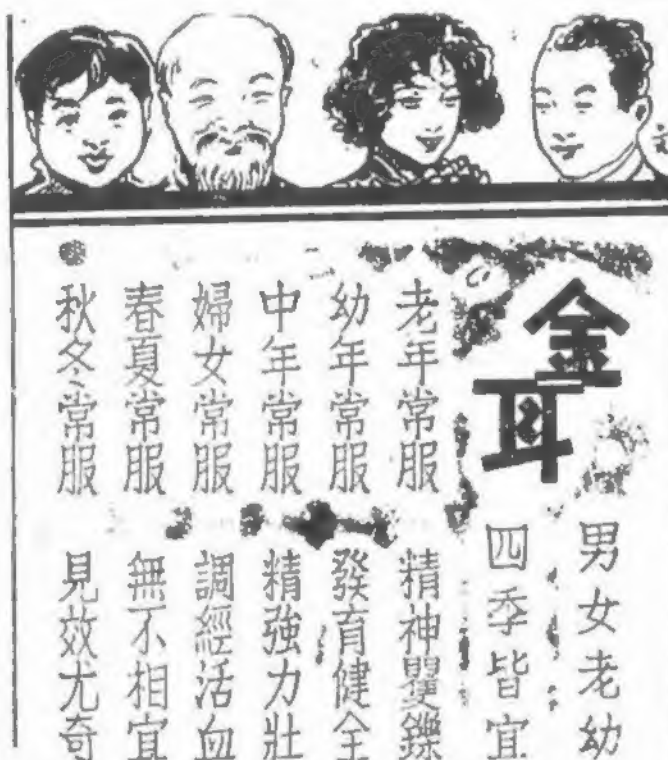 金耳
男女老幼
四季皆宜
老年常服 精神矍鑠
幼年常服 發育健全
中年常服 精強力壯
婦女常服 調經活血
春夏常服 無不相宜
秋冬常服 見效尤奇